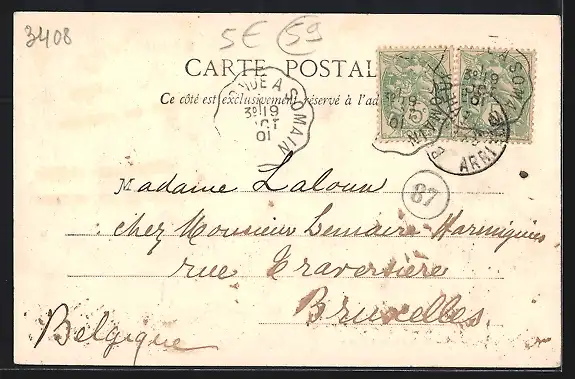 3408
5E 59
CARTE POSTAL
Ce côté est exclusivement réservé à l'ad
A SOMAIN
3E 19
OCT
01
SOMA
3E 19
01
ARR
87
Madame Laloux
chez Monsieur Lemaire-Harmignies
rue Traversière
Bruxelles
Belgique